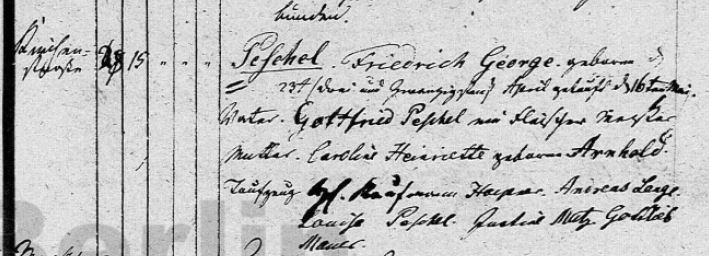 bunden.
Kirchen- 15 " " " Peschel. Friedrich George. geboren d
straße
23t (drei und zwanzigsten) April getauft d 16ten Mai.
Vater. Gottfried Peschel ein Fleischer Meister
Mutter. Caroline Heinriette geborne Arnhold.
Taufzeug Kaufmann Andreas Lange.
Louise Peschel. Gottlieb
Mauer.
Berlin